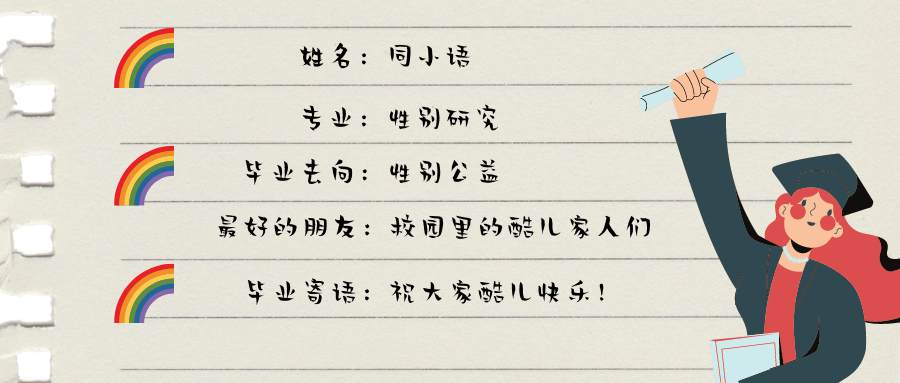 姓名：同小语
专业：性别研究
毕业去向：性别公益
最好的朋友：校园里的酷儿家人们
毕业寄语：祝大家酷儿快乐！